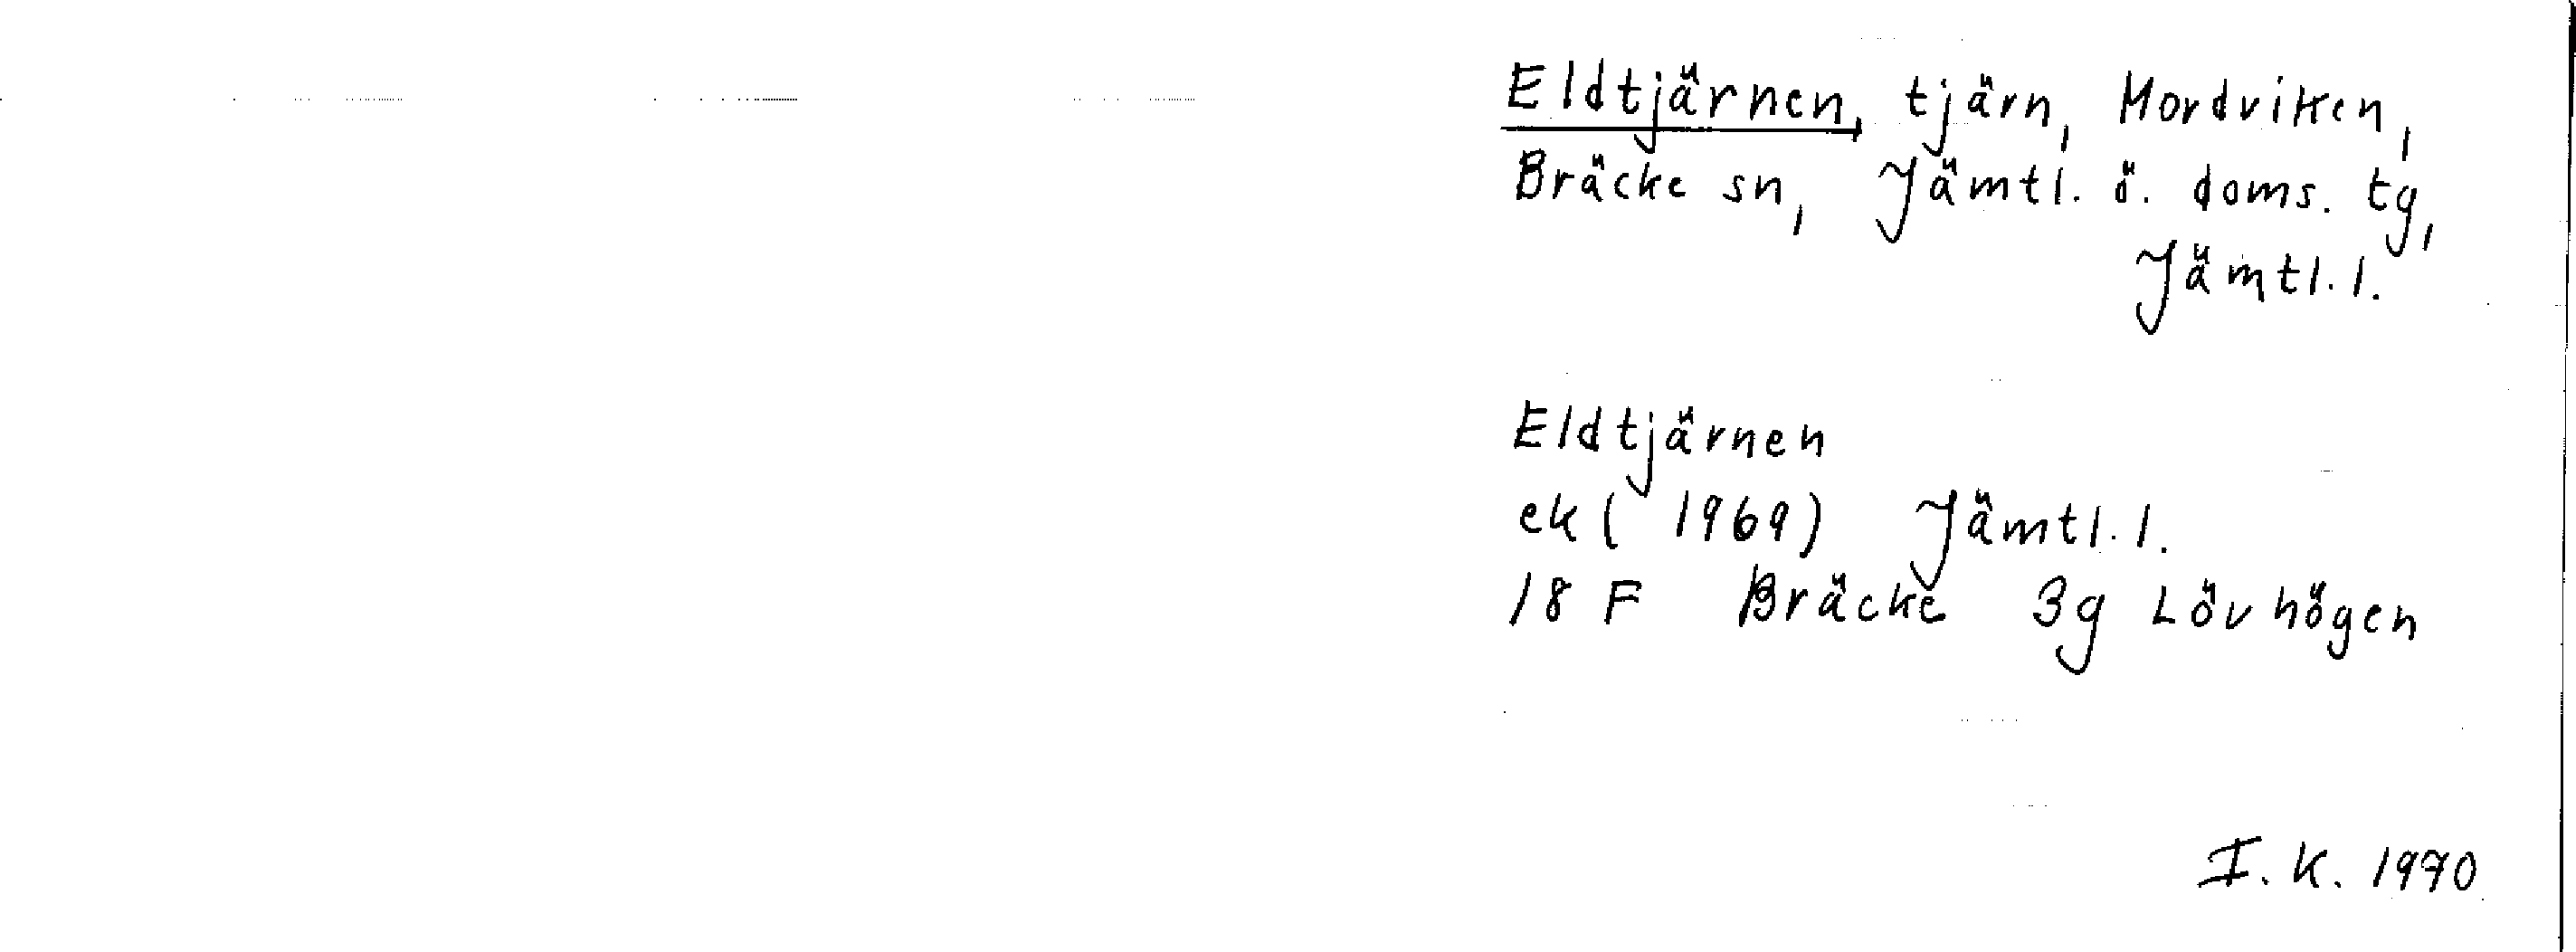 Eldtjärnen, tjärn, Mordviken,
Bräcke sn, Jämtl. ö. doms. tg,
Jämtl. l.
Eldtjärnen
ek ( 1969) Jämtl. l.
18 F Bräcke 3g Lövhögen
I. K. 1970